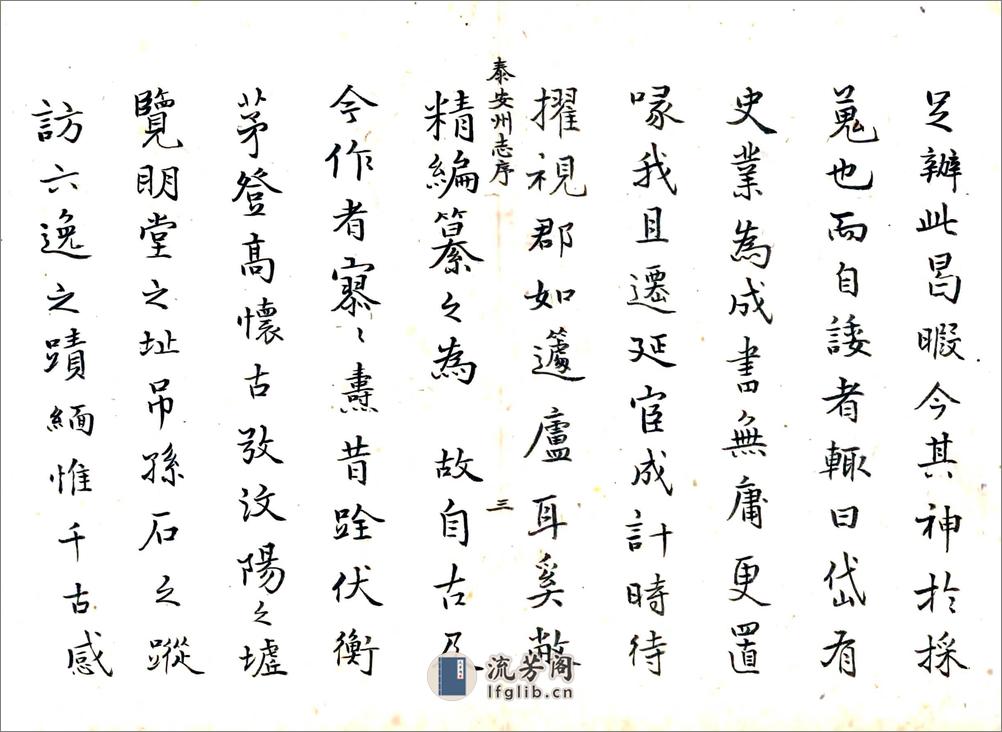 足辦此曷暇今其神於採
蒐也而自諉者輒曰岱有
史業為成書無庸更置
喙我且遷延宦成計時待
擢視郡如蘧廬耳奚敝
泰安州志序
三
精編纂之為　故自古及
今作者寥〻燾昔跧伏衡
茅登高懷古攷汶陽之墟
覽明堂之址吊孫石之蹤
訪六逸之蹟緬惟千古感
流芳阁
lfglib.cn